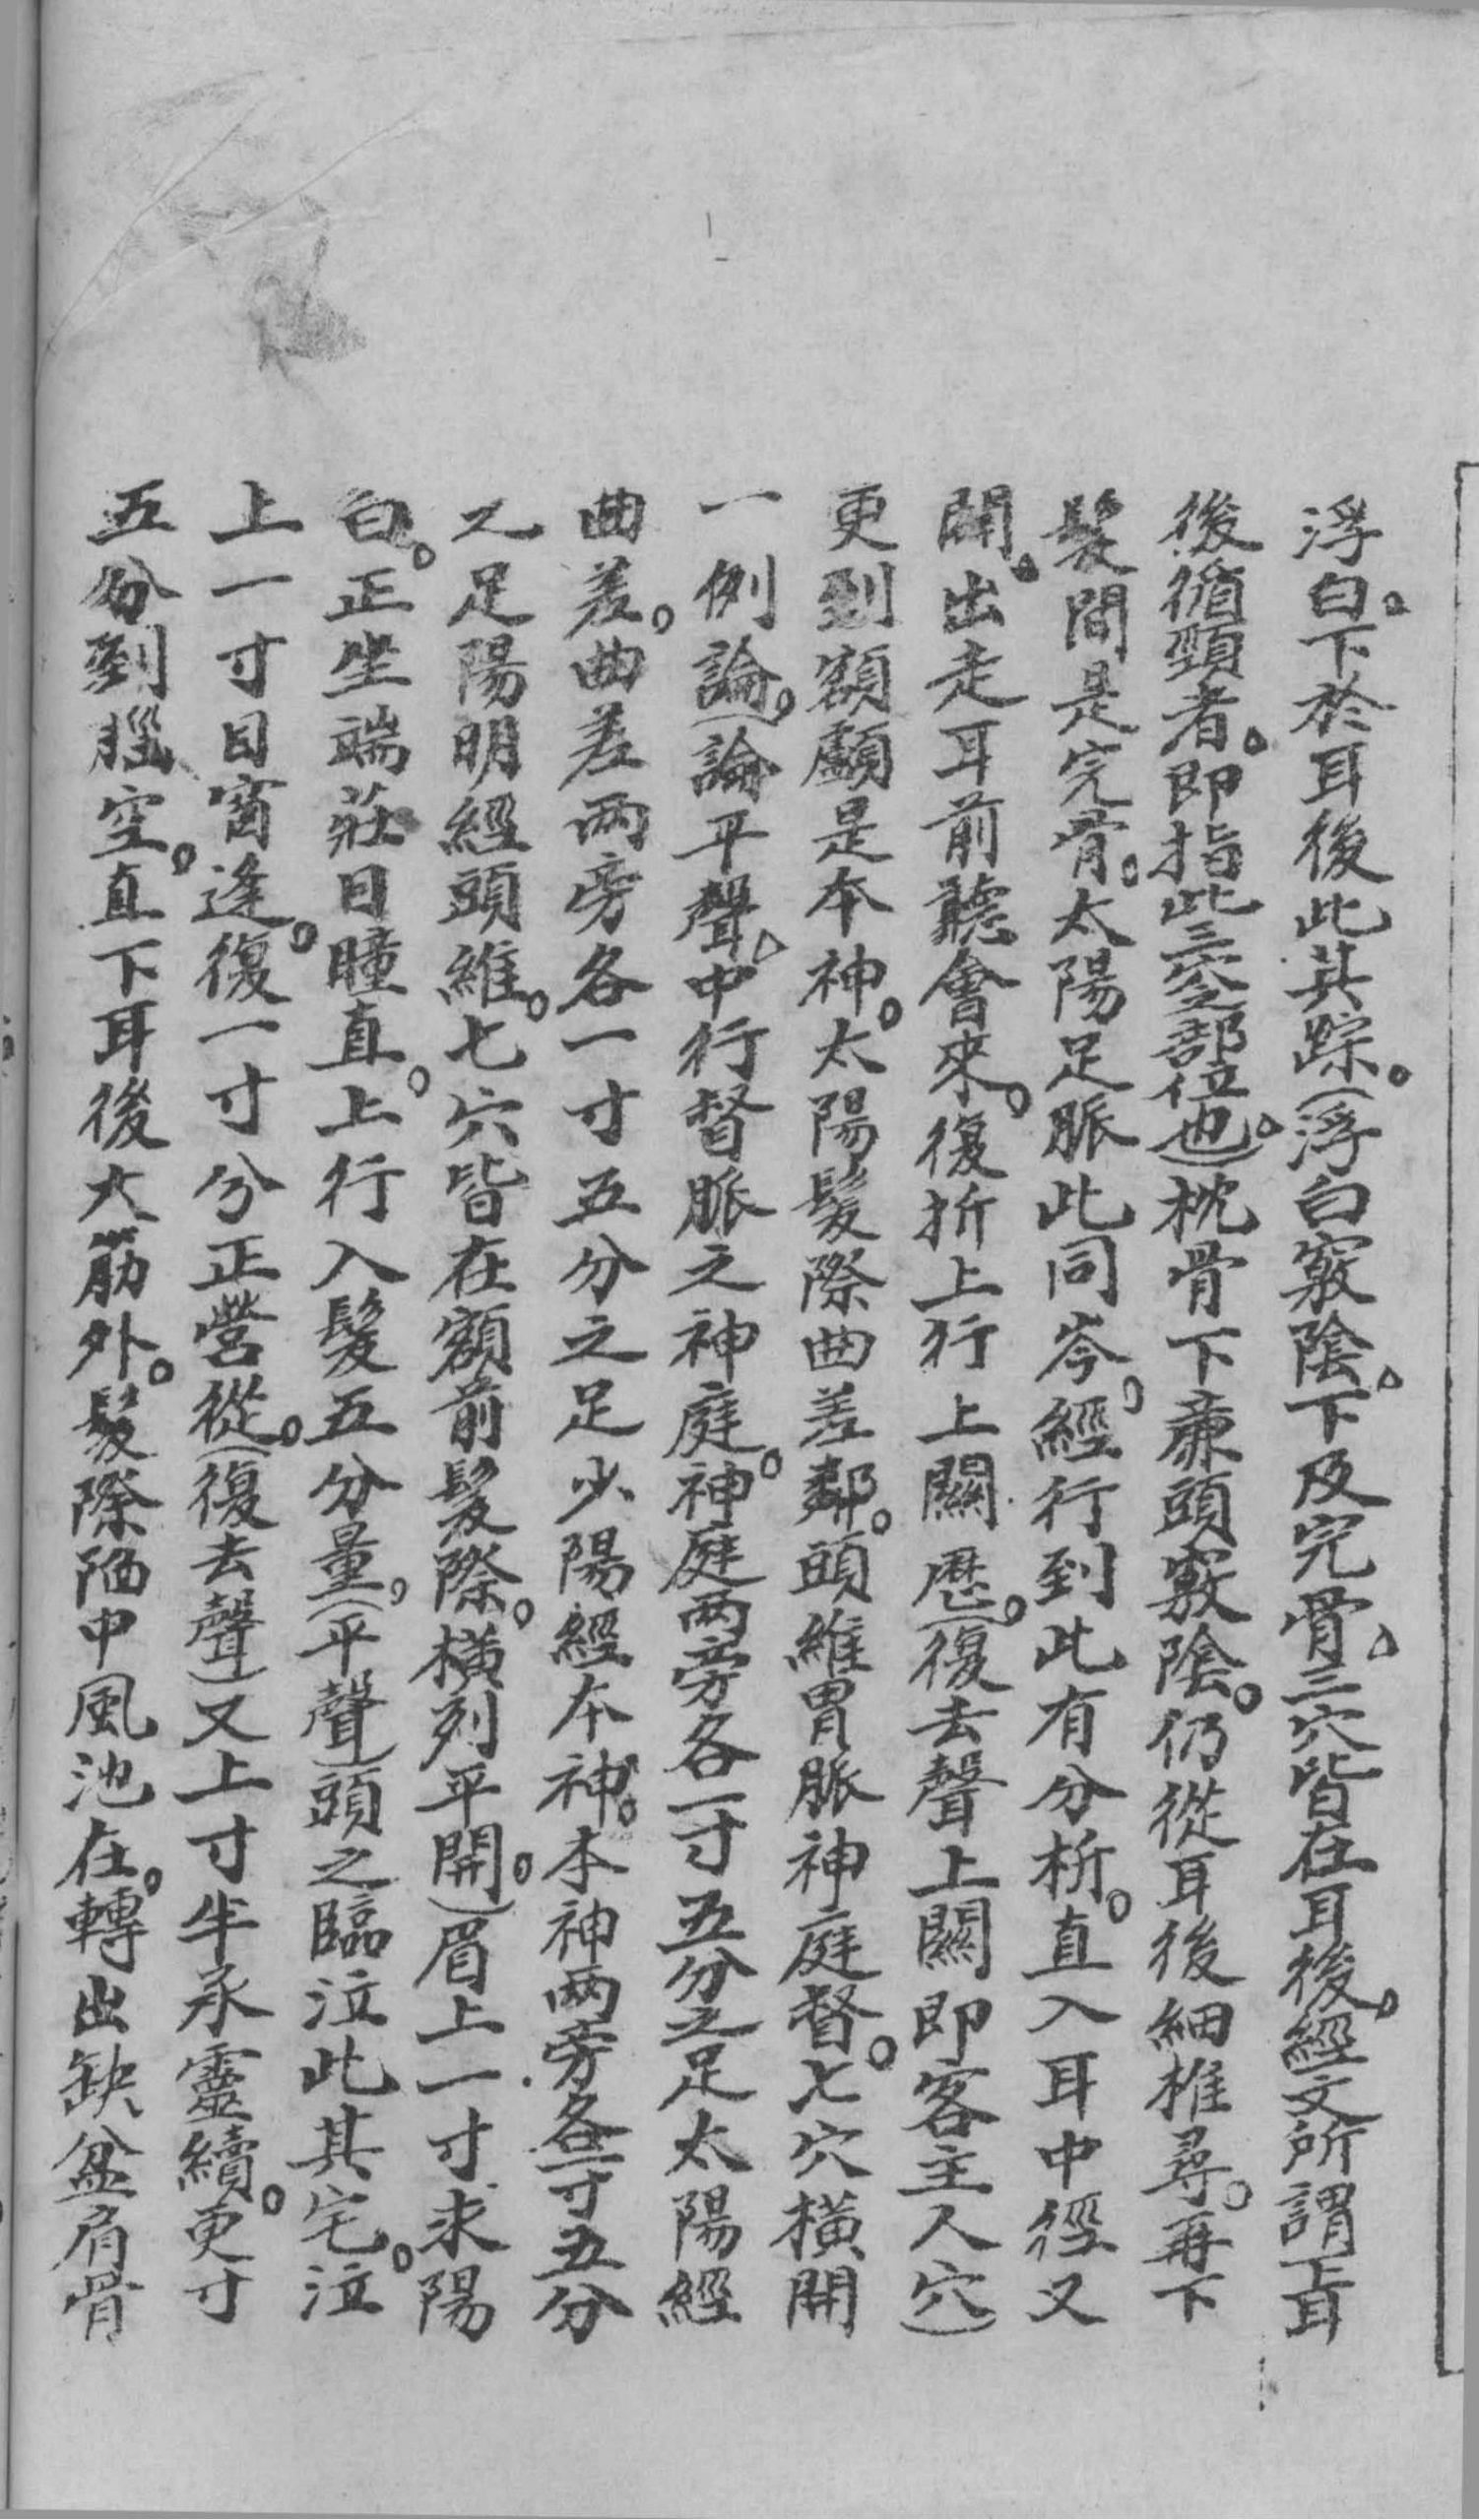 浮白。下於耳後此其踪。(浮白竅陰。下及完骨。三穴皆在耳後。經文所謂上耳
後循頸者。即指此三穴之部位也。)枕骨下亷頭竅陰。仍從耳後細推尋。再下
髮間是完骨。太陽足脈此同岑。經行到此有分析。直入耳中徑又
開。出走耳前聽會來。復折上行上關歷。(復去聲上關即客主人穴)
更到額顱是本神。太陽髮際曲差鄰。頭維胃脈神庭督。七穴橫開
一例論。(論平聲。中行督脈之神庭。神庭两旁各一寸五分之足太陽經
曲差。曲差两旁各一寸五分之足少陽經本神。本神两旁各一寸五分
之足陽明經頭維。七穴皆在額前髮際。橫列平開。)眉上一寸求陽
白。正坐端莊目瞳直。上行入髮五分量。(平聲)頭之臨泣此其宅。泣
上一寸目窗逢。復一寸兮正營從。(復去聲)又上寸半承靈續。更寸
五分到腦空。直下耳後大筋外。髮際陷中風池在。轉出缺盆肩骨